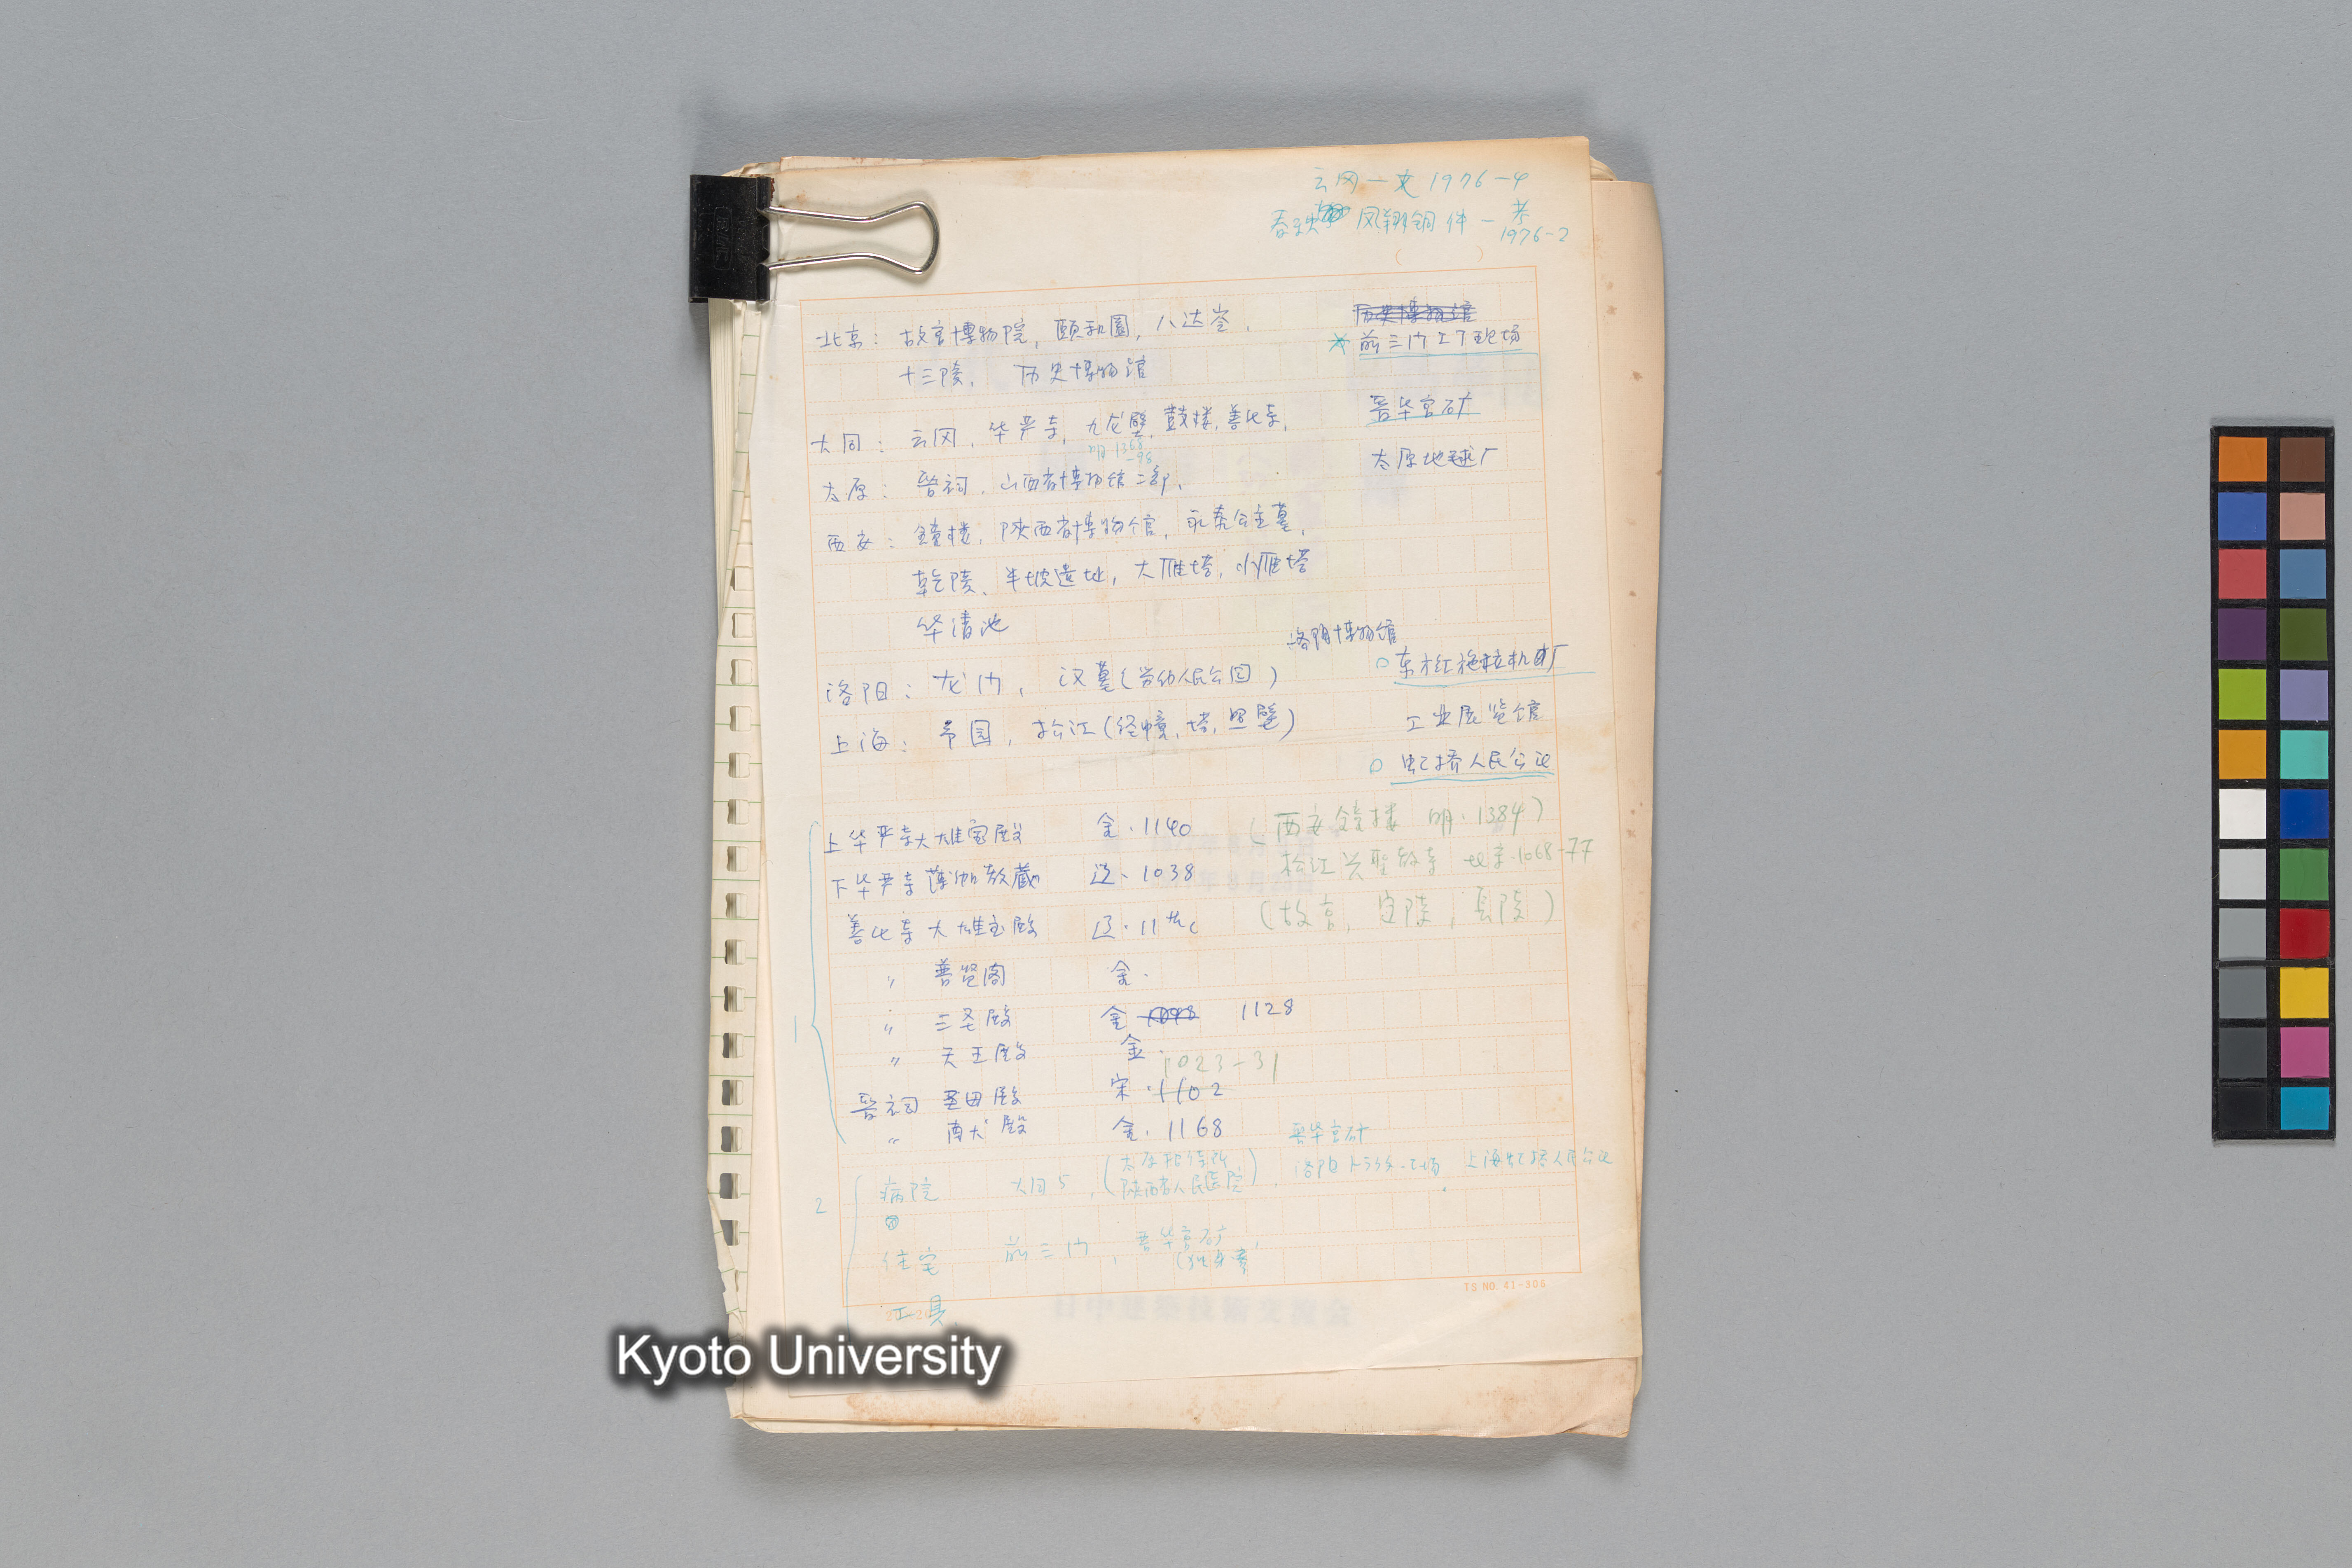 云冈一文 1976-4
春秋 凤翔铜件 - 考
1976-2
历史博物馆
北京: 故宫博物院, 頤和園, 八达岭,
前三门工了现场
十三陵, 历史博物馆
晋华宫矿
大同: 云冈, 华严寺, 九龙壁, 鼓楼, 善化寺,
明 1368
-98
太原地毯厂
太原: 晋祠, 山西省博物馆二部,
西安: 鐘楼, 陕西省博物馆, 永泰公主墓,
乾陵, 半坡遗址, 大雁塔, 小雁塔
华清池
洛阳博物馆
东方红拖拉机厂
洛阳: 龙门, 汉墓(劳动人民公园)
工业展览馆
上海: 园, 松江(経幢, 塔, 照壁)
虹桥人民公社
上华严寺大雄宝殿 金·1140 (西安鐘楼 明·1384)
松江兴聖教寺 北宋·1068-77
下华严寺薄伽教藏 辽·1038
(故宫, 定陵, 長陵)
善化寺大雄宝殿 辽·11thc
〃 普賢阁 金·
〃 三圣殿 金 1128
〃 天王殿 金
1023-31
晋祠 聖母殿 宋·1102
〃 献殿 金·1168
1
晋华宫矿
病院 大同5, (太原招待所 陕西省人民医院), 洛阳トラクター工場 上海虹桥人民公社
2
住宅 前三门, 晋华宫矿,
(独身寮
工具,
TS NO. 41-306
Kyoto University